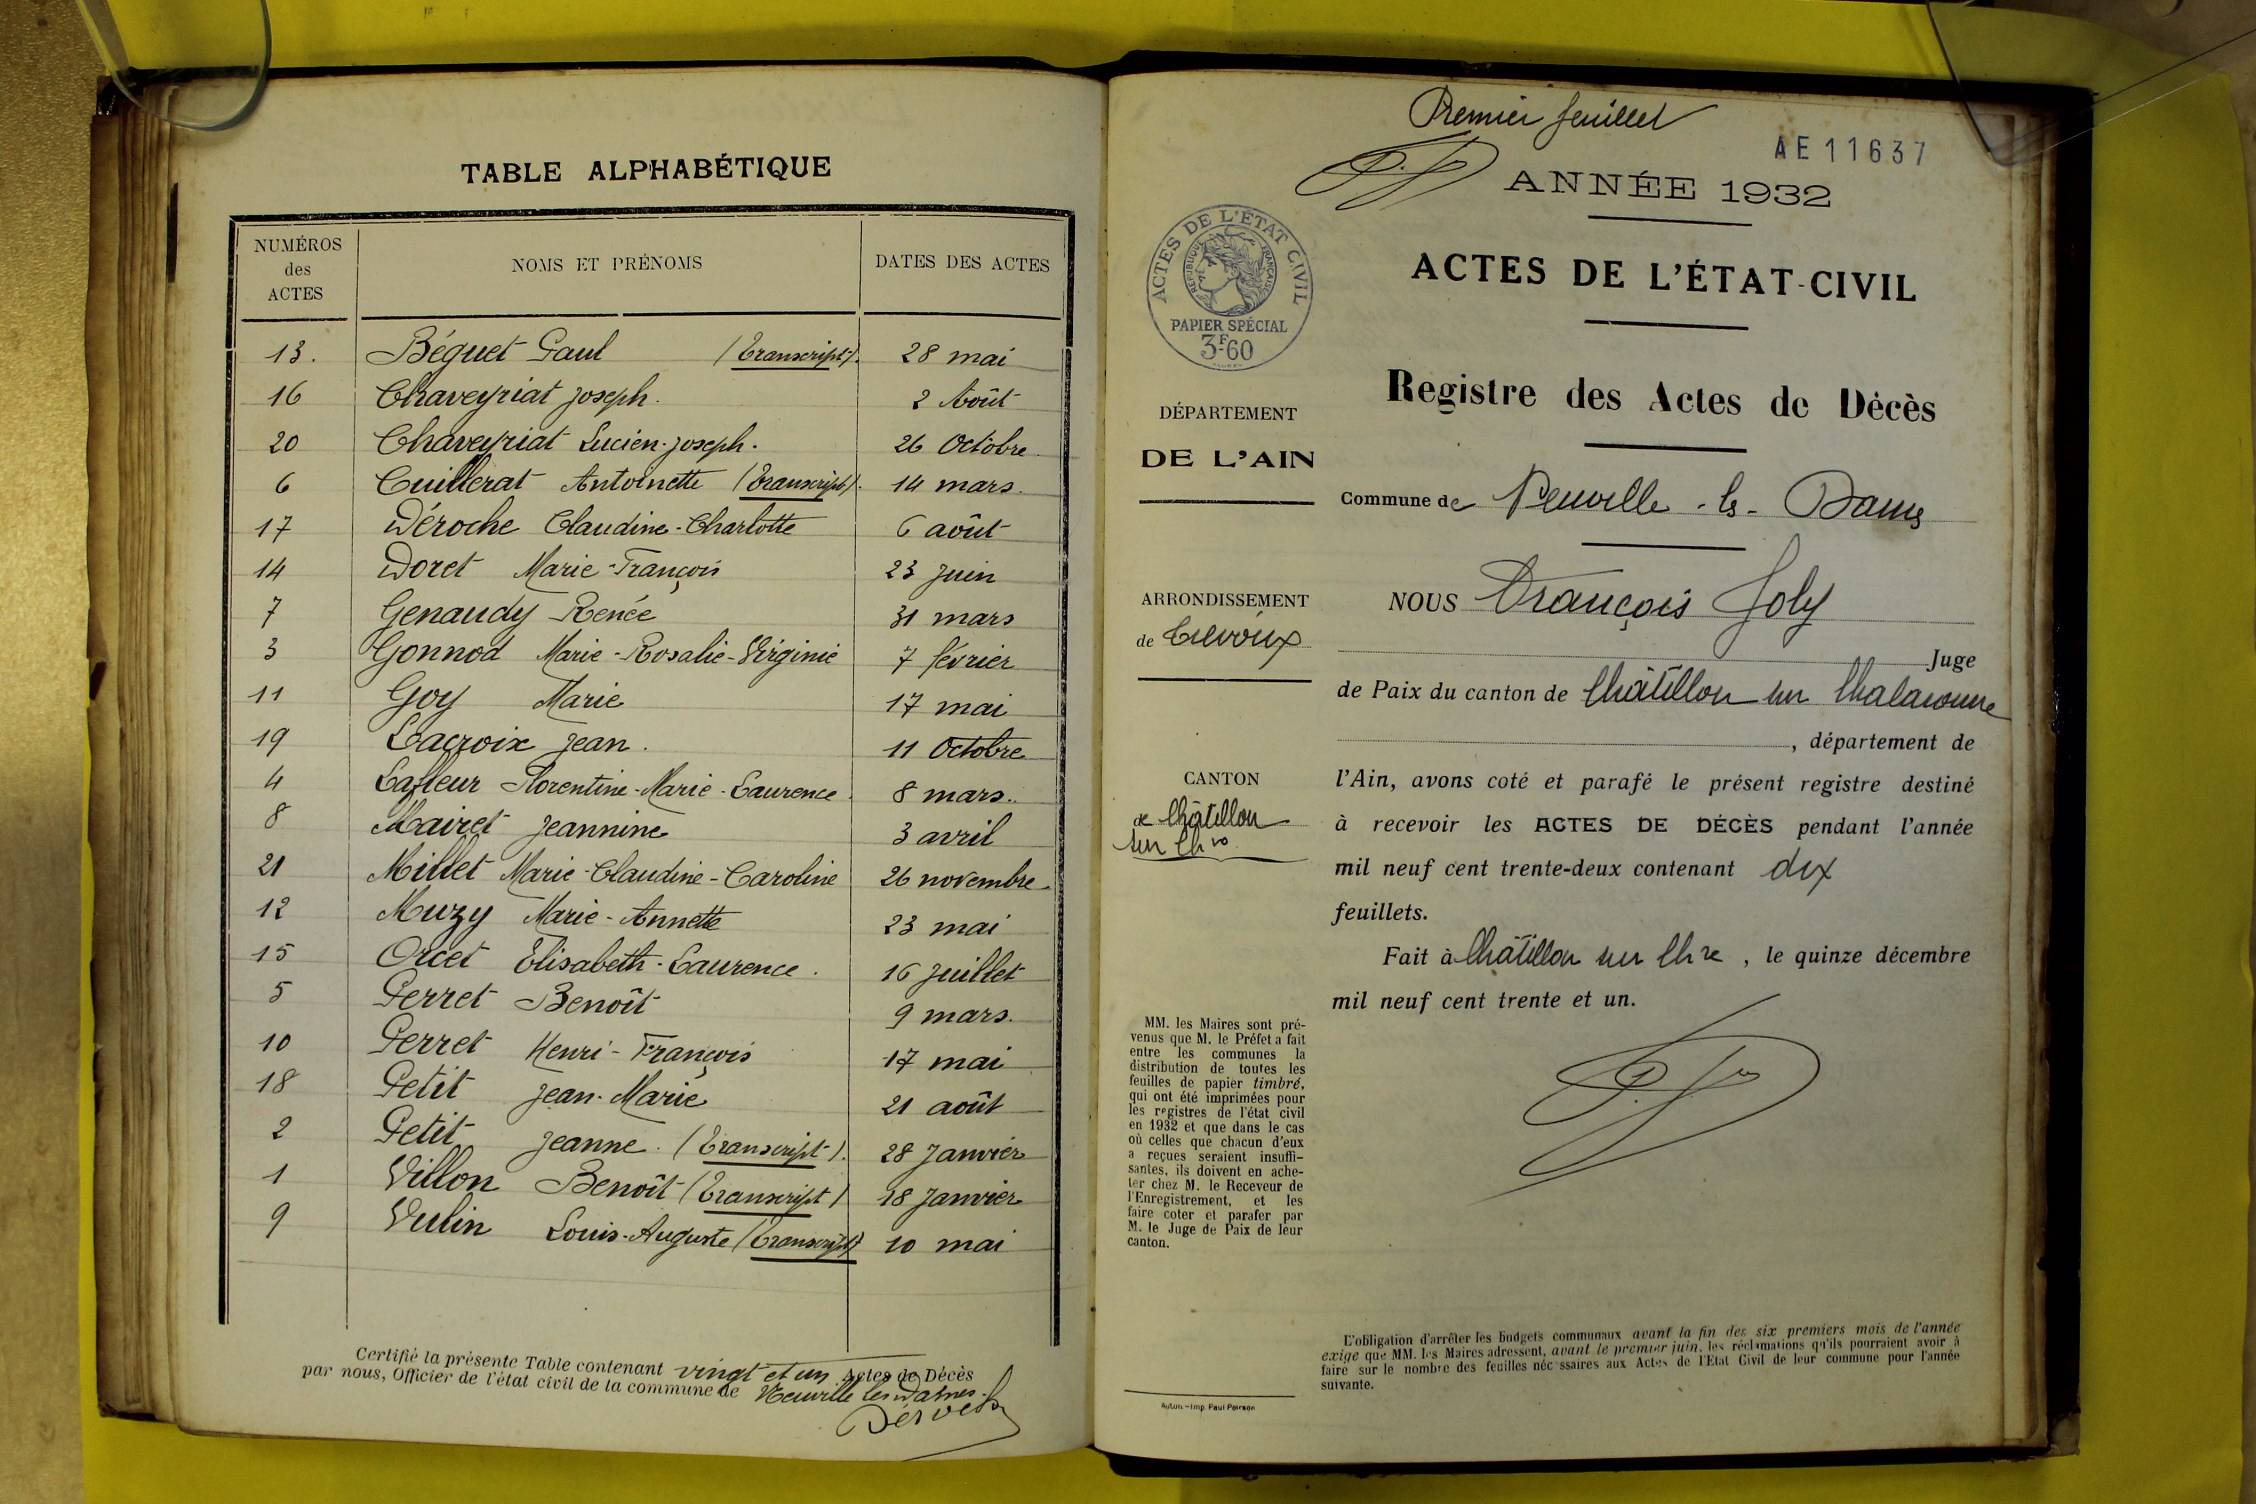 TABLE ALPHABÉTIQUE
NUMÉROS des ACTES NOMS ET PRÉNOMS DATES DES ACTES
13. Béguet Paul (Transcript.) 28 mai
16 Chaveyriat Joseph. 2 Août
20 Chaveyriat Lucien-Joseph. 26 Octobre
6 Cuillerat Antoinette (Transcript). 14 mars.
17 Déroche Claudine-Charlotte 6 août
14 Doret Marie-François 23 Juin
7 Genaudy Renée 31 mars
3 Gonnod Marie-Rosalie-Virginie 7 février
11 Goy Marie 17 mai
19 Lacroix Jean. 11 Octobre
4 Lafleur Florentine-Marie-Laurence 8 mars.
8 Mairet Jeannine 3 avril
21 Millet Marie-Claudine-Caroline 26 novembre
12 Muzy Marie-Annette 23 mai
15 Orcet Elisabeth-Laurence. 16 Juillet
5 Perret Benoît 9 mars.
10 Perret Henri-François 17 mai
18 Petit Jean-Marie 21 août
2 Petit Jeanne. (Transcript.). 28 Janvier
1 Villon Benoît (Transcript) 18 Janvier
9 Vulin Louis-Auguste (Transcript) 10 mai
Certifié la présente Table contenant vingt et un Actes de Décès
par nous, Officier de l'état civil de la commune de Neuville les Dames.
Premier feuillet
AE11637
ANNÉE 1932
ACTES DE L'ÉTAT CIVIL
RÉPUBLIQUE FRANÇAISE
PAPIER SPÉCIAL
3F60
ACTES DE L'ÉTAT-CIVIL
Registre des Actes de Décès
DÉPARTEMENT
DE L'AIN
Commune de Neuville-les-Dames
ARRONDISSEMENT
de Trévoux
NOUS François Joly
Juge
de Paix du canton de Châtillon sur Chalaronne
, département de
CANTON
de Châtillon
sur Chne
l'Ain, avons coté et parafé le présent registre destiné
à recevoir les ACTES DE DÉCÈS pendant l'année
mil neuf cent trente-deux contenant dix
feuillets.
Fait à Châtillon sur Chne, le quinze décembre
mil neuf cent trente et un.
MM. les Maires sont pré-
venus que M. le Préfet a fait
entre les communes la
distribution de toutes les
feuilles de papier timbré,
qui ont été imprimées pour
les registres de l'état civil
en 1932 et que dans le cas
où celles que chacun d'eux
a reçues seraient insuffi-
santes, ils doivent en ache-
ter chez M. le Receveur de
l'Enregistrement, et les
faire coter et parafer par
M. le Juge de Paix de leur
canton.
L'obligation d'arrêter les budgets communaux avant la fin des six premiers mois de l'année
exige que MM. les Maires adressent, avant le premier juin, les réclamations qu'ils pourraient avoir à
faire sur le nombre des feuilles nécessaires aux Actes de l'Etat Civil de leur commune pour l'année
suivante.
Autun. - Imp. Paul Poirson